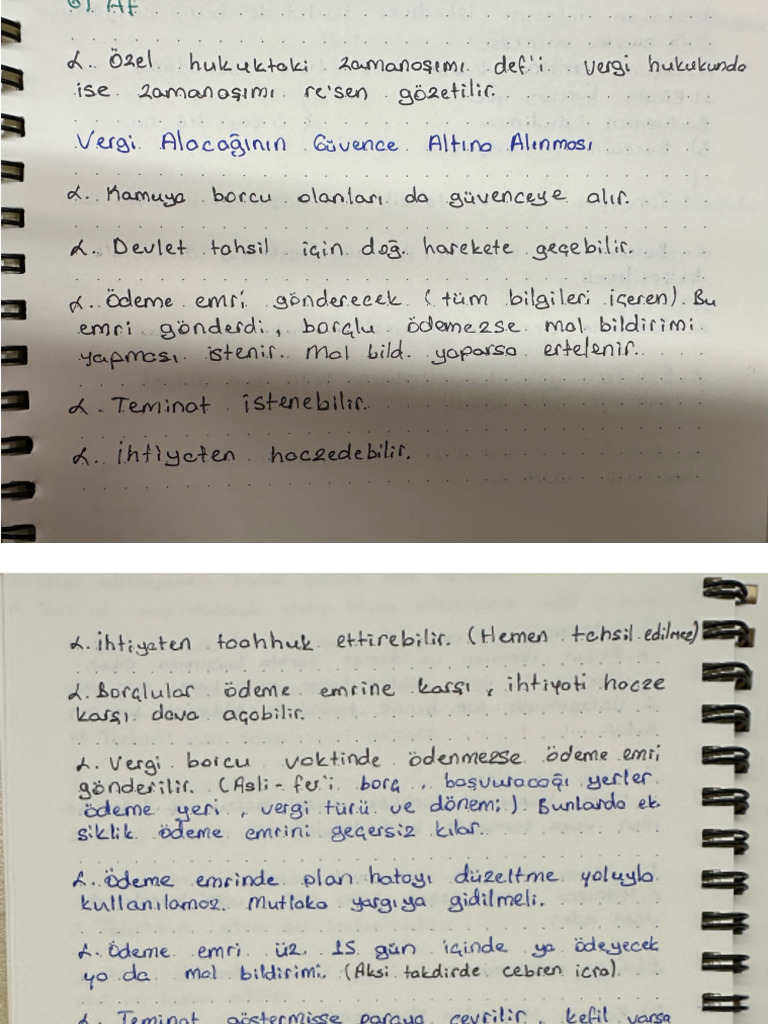 6) Af
L. Özel hukuktaki zamanaşımı def'i vergi hukukunda
ise zamanaşımı re'sen gözetilir.
Vergi Alacağının Güvence Altına Alınması
L. Kamuya borcu olanları da güvenceye alır.
L. Devlet tahsil için doğ. harekete geçebilir.
L. Ödeme emri gönderecek (tüm bilgileri içeren). Bu
emri gönderdi, borçlu ödemezse mal bildirimi
yapması istenir. Mal bild. yaparsa ertelenir.
L. Teminat istenebilir.
L. İhtiyaten haczedebilir.
L. İhtiyaten taahhuk ettirebilir. (Hemen tahsil edilmez)
L. Borçlular ödeme emrine karşı, ihtiyati hacze
karşı dava açabilir.
L. Vergi borcu vaktinde ödenmezse ödeme emri
gönderilir. (Asli-fer'i borç, başvuracağı yerler
ödeme yeri, vergi türü ve dönemi) Bunlarda ek
siklik ödeme emrini geçersiz kılar.
L. Ödeme emrinde olan hatayı düzeltme yoluyla
kullanılamaz. Mutlaka yargıya gidilmeli.
L. Ödeme emri üz. 15 gün içinde ya ödeyecek
ya da mal bildirimi. (Aksi takdirde cebren icra)
L. Teminat göstermişse paraya çevrilir, kefil varsa